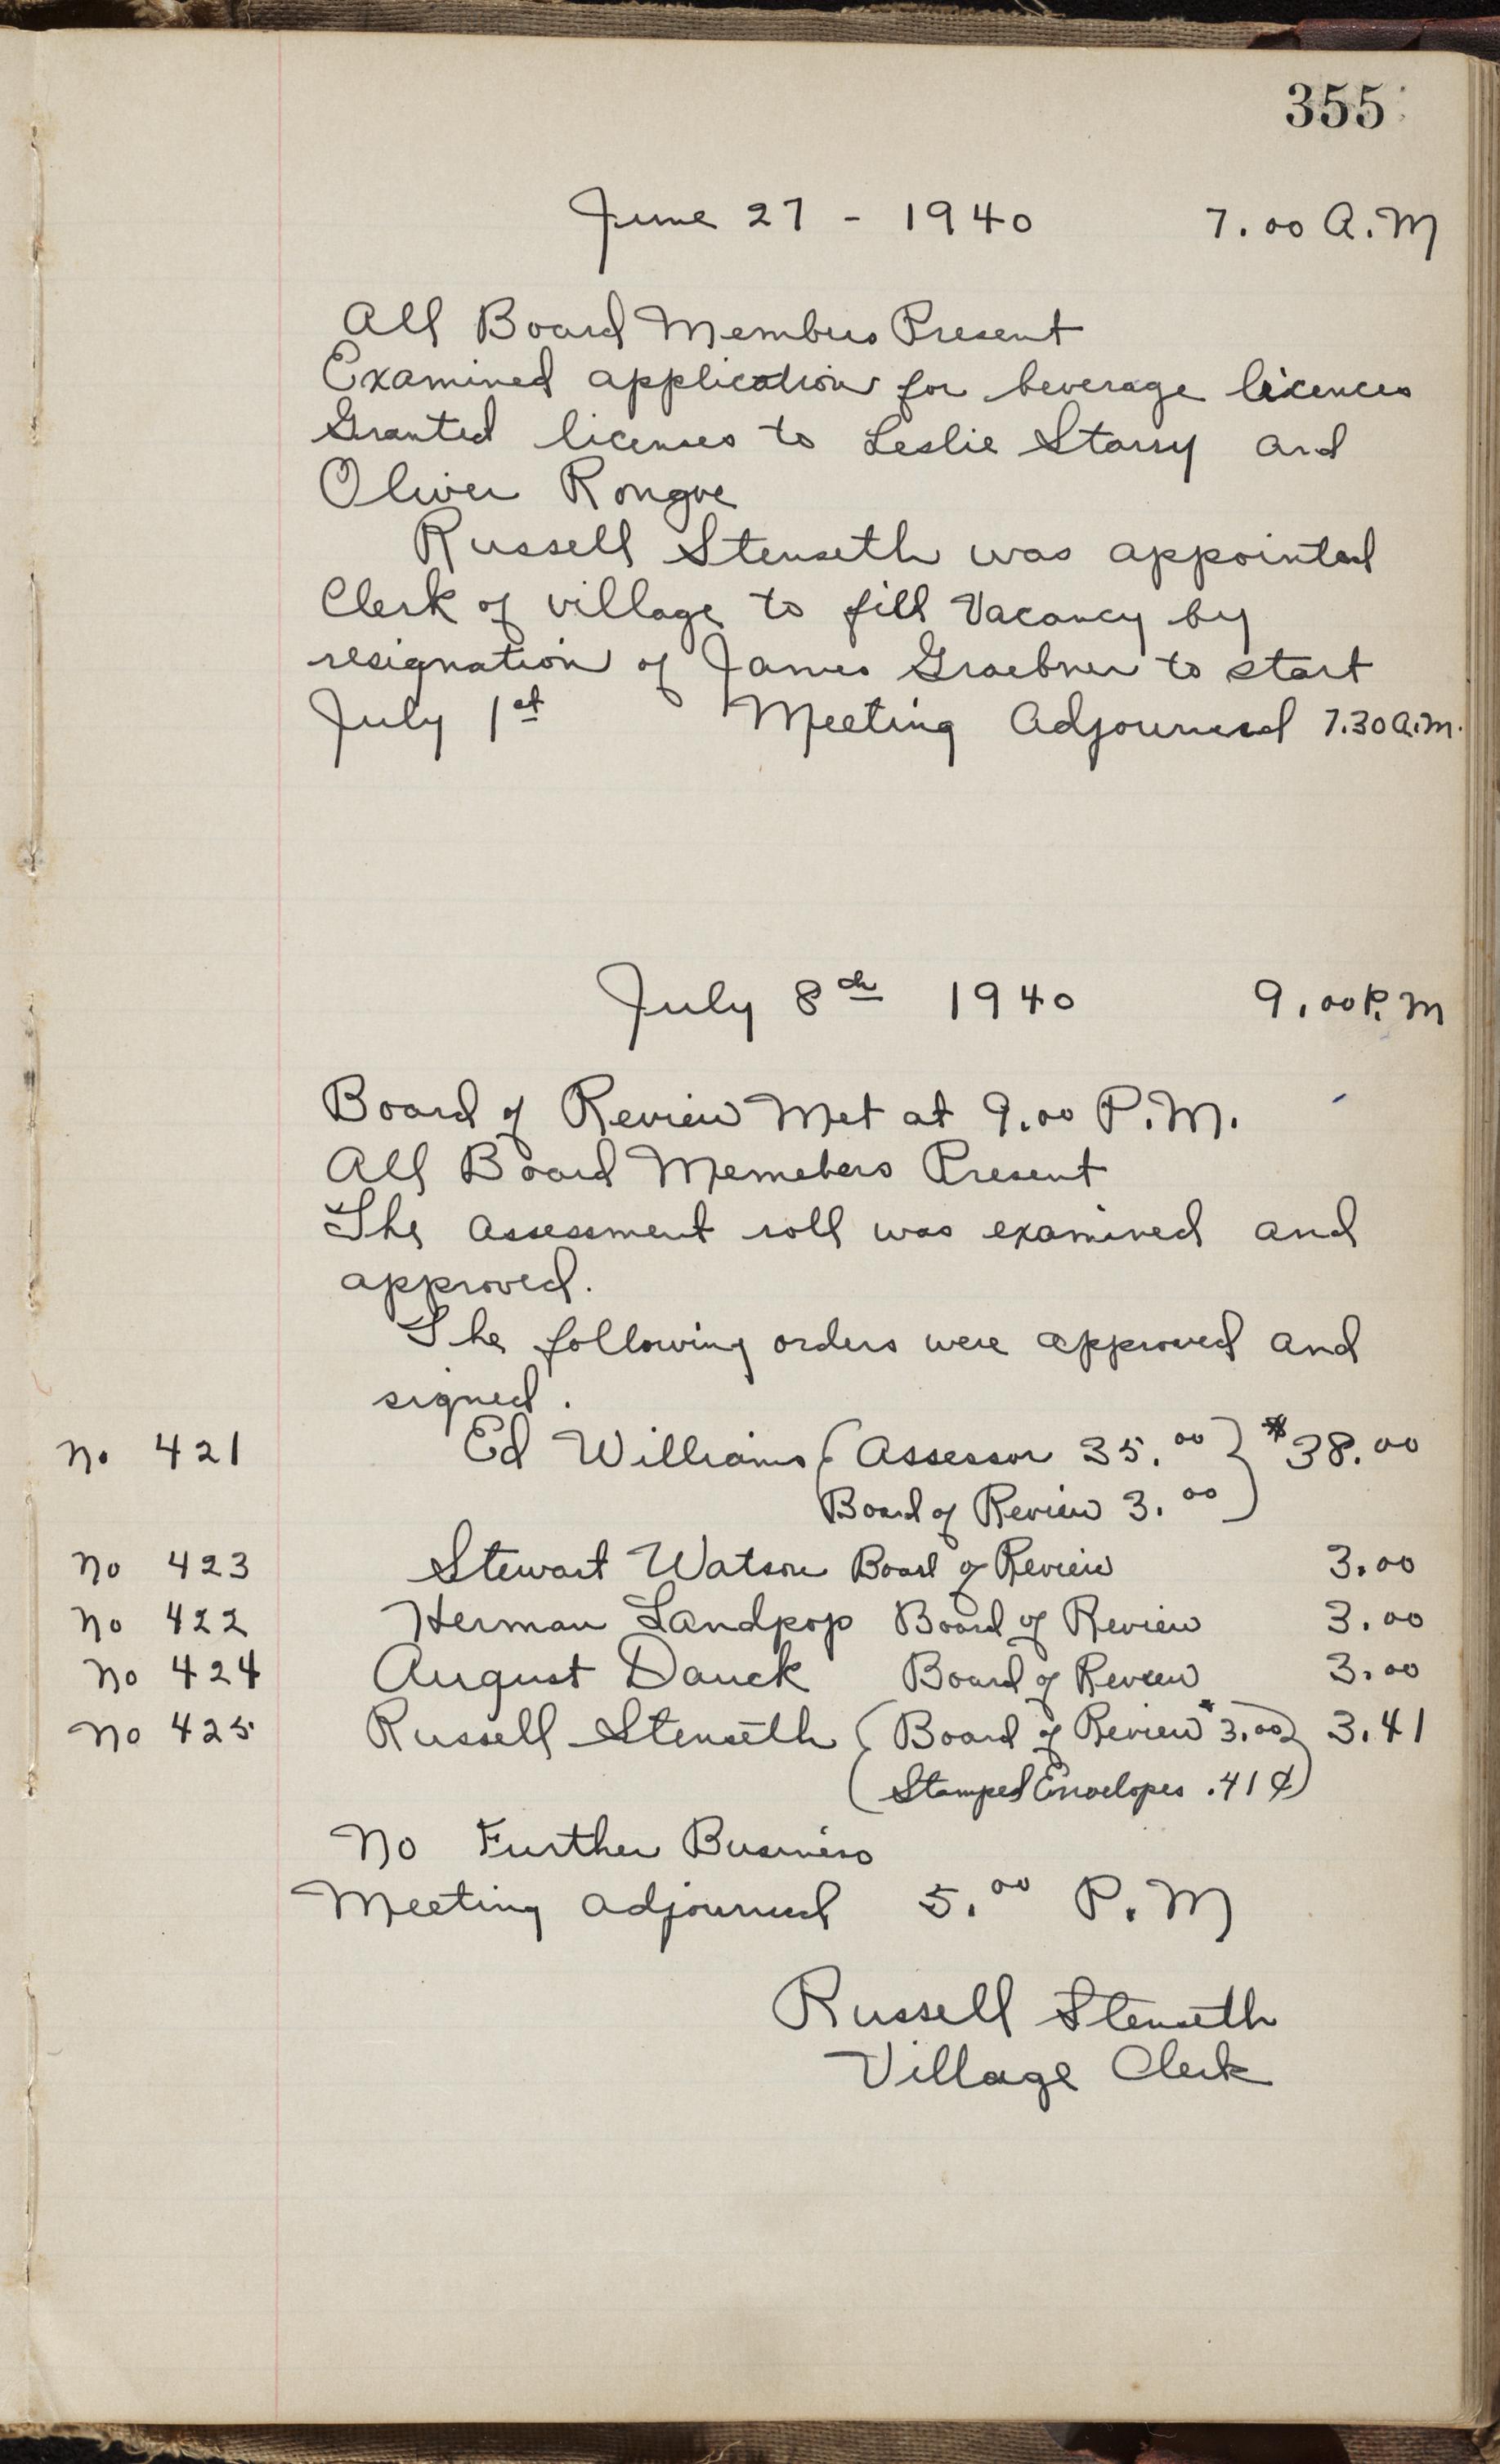 355
June 27 - 1940 7.00 A.M
All Board Members Present
Examined applications for beverage licences
Granted licenses to Leslie Starry and
Oliver Rongve
Russell Stenseth was appointed
Clerk of village to fill Vacancy by
resignation of James Graebner to start
July 1st Meeting Adjourned 7.30 A.M.
July 8th 1940 9.00 P.M
Board of Review Met at 9.00 P.M.
All Board Memebers Present
The assessment roll was examined and
approved.
The following orders were approved and
signed.
No 421 Ed Williams (Assessor 35.00 } $38.00
Board of Review 3.00
No 423 Stewart Watson Board of Review 3.00
No 422 Herman Landpop Board of Review 3.00
No 424 August Dauck Board of Review 3.00
No 425 Russell Stenseth (Board of Review $3.00) 3.41
(Stamped Envelopes .41¢)
No Further Business
Meeting adjourned 5.00 P.M
Russell Stenseth
Village Clerk